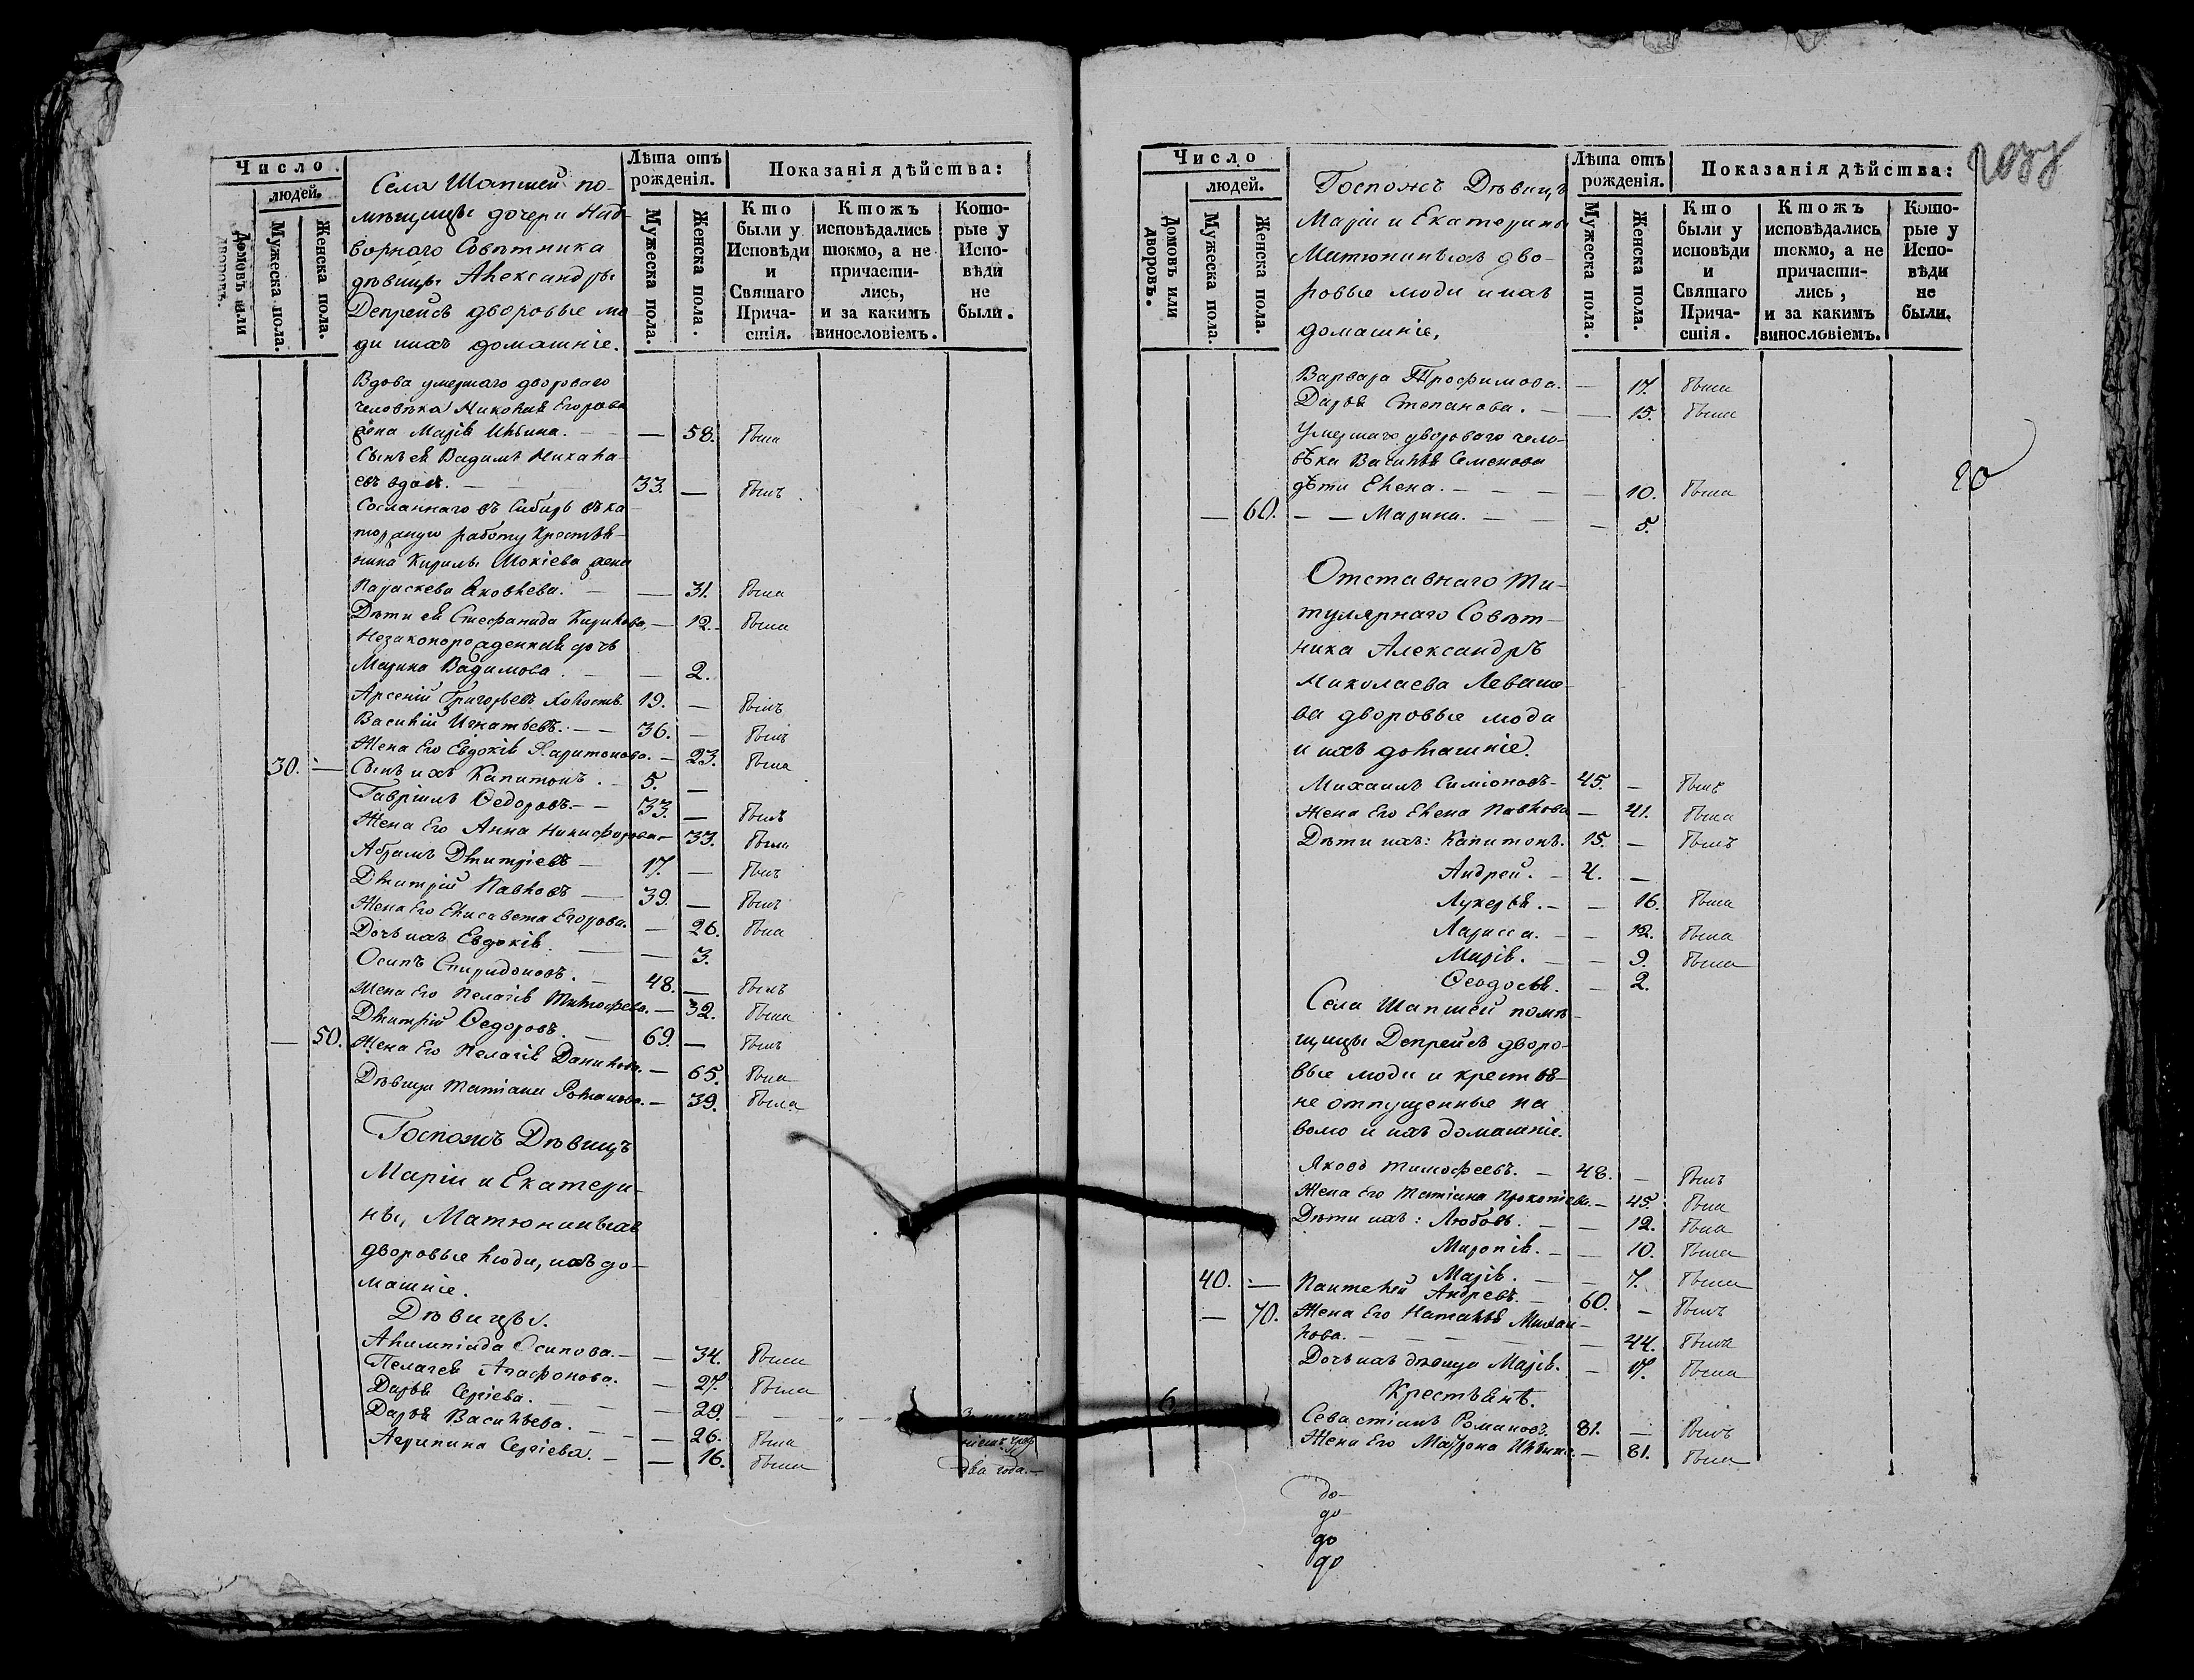 Число
людей.
Домовъ или дворовъ.
Мужеска пола.
Женска пола.
Села Шапшей по-
мѣщицы дочери Над-
ворнаго Совѣтника
дѣвицы Александры
Депрейсъ дворовые лю
ди ихъ домашніе.
Лѣта отъ рожденія.
Мужеска пола.
Женска пола.
Показанія дѣйства:
Кто были у Исповѣди и Святаго Прича-стія.
Ктожъ исповѣдались токмо, а не причасти-лись, и за какимъ винословіемъ.
Кото-рые у Испо-вѣди не были.
Вдова умершаго двороваго
человѣка Николая Егорова
жена Марія Ильина. — — 58. была
Сынъ ея Вадимъ Никола-
евъ вдов. — 33. — былъ
Сосланнаго въ Сибирь въ ка-
торжную работу крестья-
нина Кирилы Мокіева жена
Параскева Яковлева. — — 31. была
Дѣти ея Стефанида Кирилова. — 12. была
Незаконорожденная дочь
Марина Вадимова. — — 2.
Арсеній Григорьевъ холостъ. 19. — былъ
Василій Игнатьевъ. — 36. — былъ
Жена Его Евдокія Харитонова. — 23. была
30. — Сынъ ихъ Капитонъ. 5. —
Гавріилъ Ѳедоровъ. — 33. — былъ
Жена Его Анна Никифорова — 33. была
Абрамъ Дмитріевъ — 17. — былъ
Дмитрій Павловъ — 39. — былъ
Жена Его Елисавета Егорова. — 26. была
Дочь ихъ Евдокія. — — 3.
Осипъ Спиридоновъ. 48. — былъ
Жена Его Пелагія Тимофеева. — 32. была
Дмитрій Ѳедоровъ. — 69. — былъ
— 50. Жена Его Пелагія Данилова. — 65. была
Дѣвица Татіана Романова. — 39. была
Госпожъ Дѣвицъ
Маріи и Екатери-
ны, Матюниныхъ
дворовые люди, ихъ до-
машніе.
Дѣвицы.
Алимпіада Осипова. — — 34. была
Пелагея Агафонова. — 27. была
Дарья Сергіева. — — 29. — — —
Дарья Васильева. — — 26. была
Агрипина Сергіева. — — 16. была
два года. —
Число
людей.
Домовъ или дворовъ.
Мужеска пола.
Женска пола.
Госпожъ Дѣвицъ
Маріи и Екатерины
Матюниныхъ дво-
ровые люди и ихъ
домашніе,
Лѣта отъ рожденія.
Мужеска пола.
Женска пола.
Показанія дѣйства:
Кто были у исповѣди и Святаго Прича-стія.
Ктожъ исповѣдались токмо, а не причасти-лись, и за какимъ винословіемъ.
Кото-рые у Испо-вѣди не были.
Варвара Трофимова. — 17. была
Дарья Степанова. — — 15. была
Умершаго двороваго чело-
вѣка Василья Семенова
дѣти Елена. — — — 10. была
20
— 60. — — Марина. — — — 5.
Отставнаго Ти-
тулярнаго Совѣт-
ника Александръ
Николаева Леваше-
ва дворовые люди
и ихъ домашніе.
Михаилъ Симіоновъ — 45. — былъ
Жена Его Елена Павлова — 41. была
Дѣти ихъ: Капитонъ. 15. — былъ
Андрей. — 4. —
Лукерья. — — 16. была
Лариса. — — 12. была
Марія. — — 9. была
Ѳеодосья. — 2.
Села Шапшей помѣ-
щицы Депрейсъ дворо-
вые люди и крестья-
не отпущенные на
волю и ихъ домашніе.
Яковъ Тимофеевъ. — 48. — былъ
Жена Его Татіана Прокопіева. — 45. была
Дѣти ихъ: Любовь. — — 12. была
Миропія. — — 10. была
Марія. — — 7. была
40. — Пантелей Андревъ. — 60. — былъ
— 70. Жена Его Наталья Михаи-
лова. — — — — 44. была
Дочь ихъ дѣвица Марія. — 17. была
Крестьянъ.
6
Севастіанъ Романовъ. 81. — былъ
Жена Его Матрона Ильина. — 81. была
до-
до-
до
до